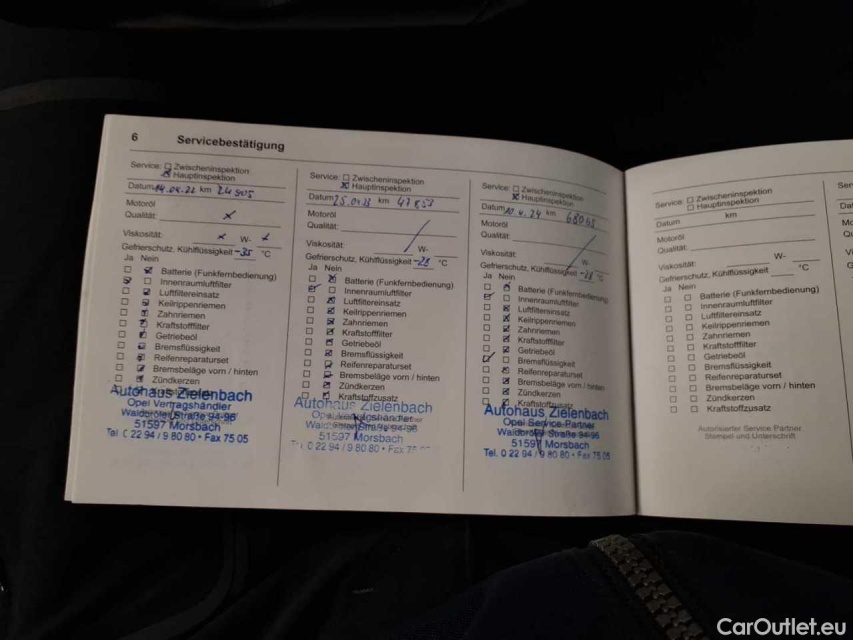 6 Servicebestätigung
Service: Zwischeninspektion
Hauptinspektion
Datum 14.04.22 km 24905
Motoröl
Qualität:
Viskosität: W-
Gefrierschutz, Kühlflüssigkeit -35 °C
Ja Nein
Batterie (Funkfernbedienung)
Innenraumluftfilter
Luftfiltereinsatz
Keilrippenriemen
Zahnriemen
Kraftstofffilter
Getriebeöl
Bremsflüssigkeit
Reifenreparaturset
Bremsbeläge vorn / hinten
Zündkerzen
Autohaus Zielenbach
Opel Vertragshändler
Waldbröler Straße 94-96
51597 Morsbach
Tel. 0 22 94 / 9 80 80 • Fax 75 05
Service: Zwischeninspektion
Hauptinspektion
Datum 25.04.23 km 47857
Motoröl
Qualität:
Viskosität: W-
Gefrierschutz, Kühlflüssigkeit -28 °C
Ja Nein
Batterie (Funkfernbedienung)
Innenraumluftfilter
Luftfiltereinsatz
Keilrippenriemen
Zahnriemen
Kraftstofffilter
Getriebeöl
Bremsflüssigkeit
Reifenreparaturset
Bremsbeläge vorn / hinten
Zündkerzen
Kraftstoffzusatz
Autohaus Zielenbach
Opel Vertragshändler
Waldbröler Straße 94-96
51597 Morsbach
0 22 94 / 9 80 80 • Fax 75
Service: Zwischeninspektion
Hauptinspektion
Datum 10.4.24 km
Motoröl
Qualität:
Viskosität: W-
Gefrierschutz, Kühlflüssigkeit -28 °C
Ja Nein
Batterie (Funkfernbedienung)
Innenraumluftfilter
Luftfiltereinsatz
Keilrippenriemen
Zahnriemen
Kraftstofffilter
Getriebeöl
Bremsflüssigkeit
Reifenreparaturset
Bremsbeläge vorn / hinten
Zündkerzen
Kraftstoffzusatz
Autohaus Zielenbach
Opel Service-Partner
Waldbröler Straße 94-96
51597 Morsbach
Tel. 0 22 94 / 9 80 80 • Fax 75 05
Service: Zwischeninspektion
Hauptinspektion
Datum km
Motoröl
Qualität:
Viskosität: W-
Gefrierschutz, Kühlflüssigkeit °C
Ja Nein
Batterie (Funkfernbedienung)
Innenraumluftfilter
Luftfiltereinsatz
Keilrippenriemen
Zahnriemen
Kraftstofffilter
Getriebeöl
Bremsflüssigkeit
Reifenreparaturset
Bremsbeläge vorn / hinten
Zündkerzen
Kraftstoffzusatz
Autorisierter Service Partner
Stempel und Unterschrift
CarOutlet.eu